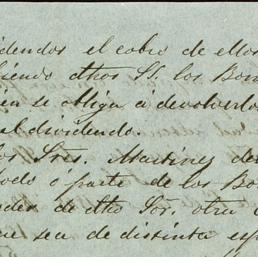 idendos el cobro de ellos
biendo dhos SS. los Bon
ien se obliga á devolverlo
al dividendo.
los Sres. Martinez de
todo ó parte de los Bo
der de dho Sor. otra
ue sea de distinta esp